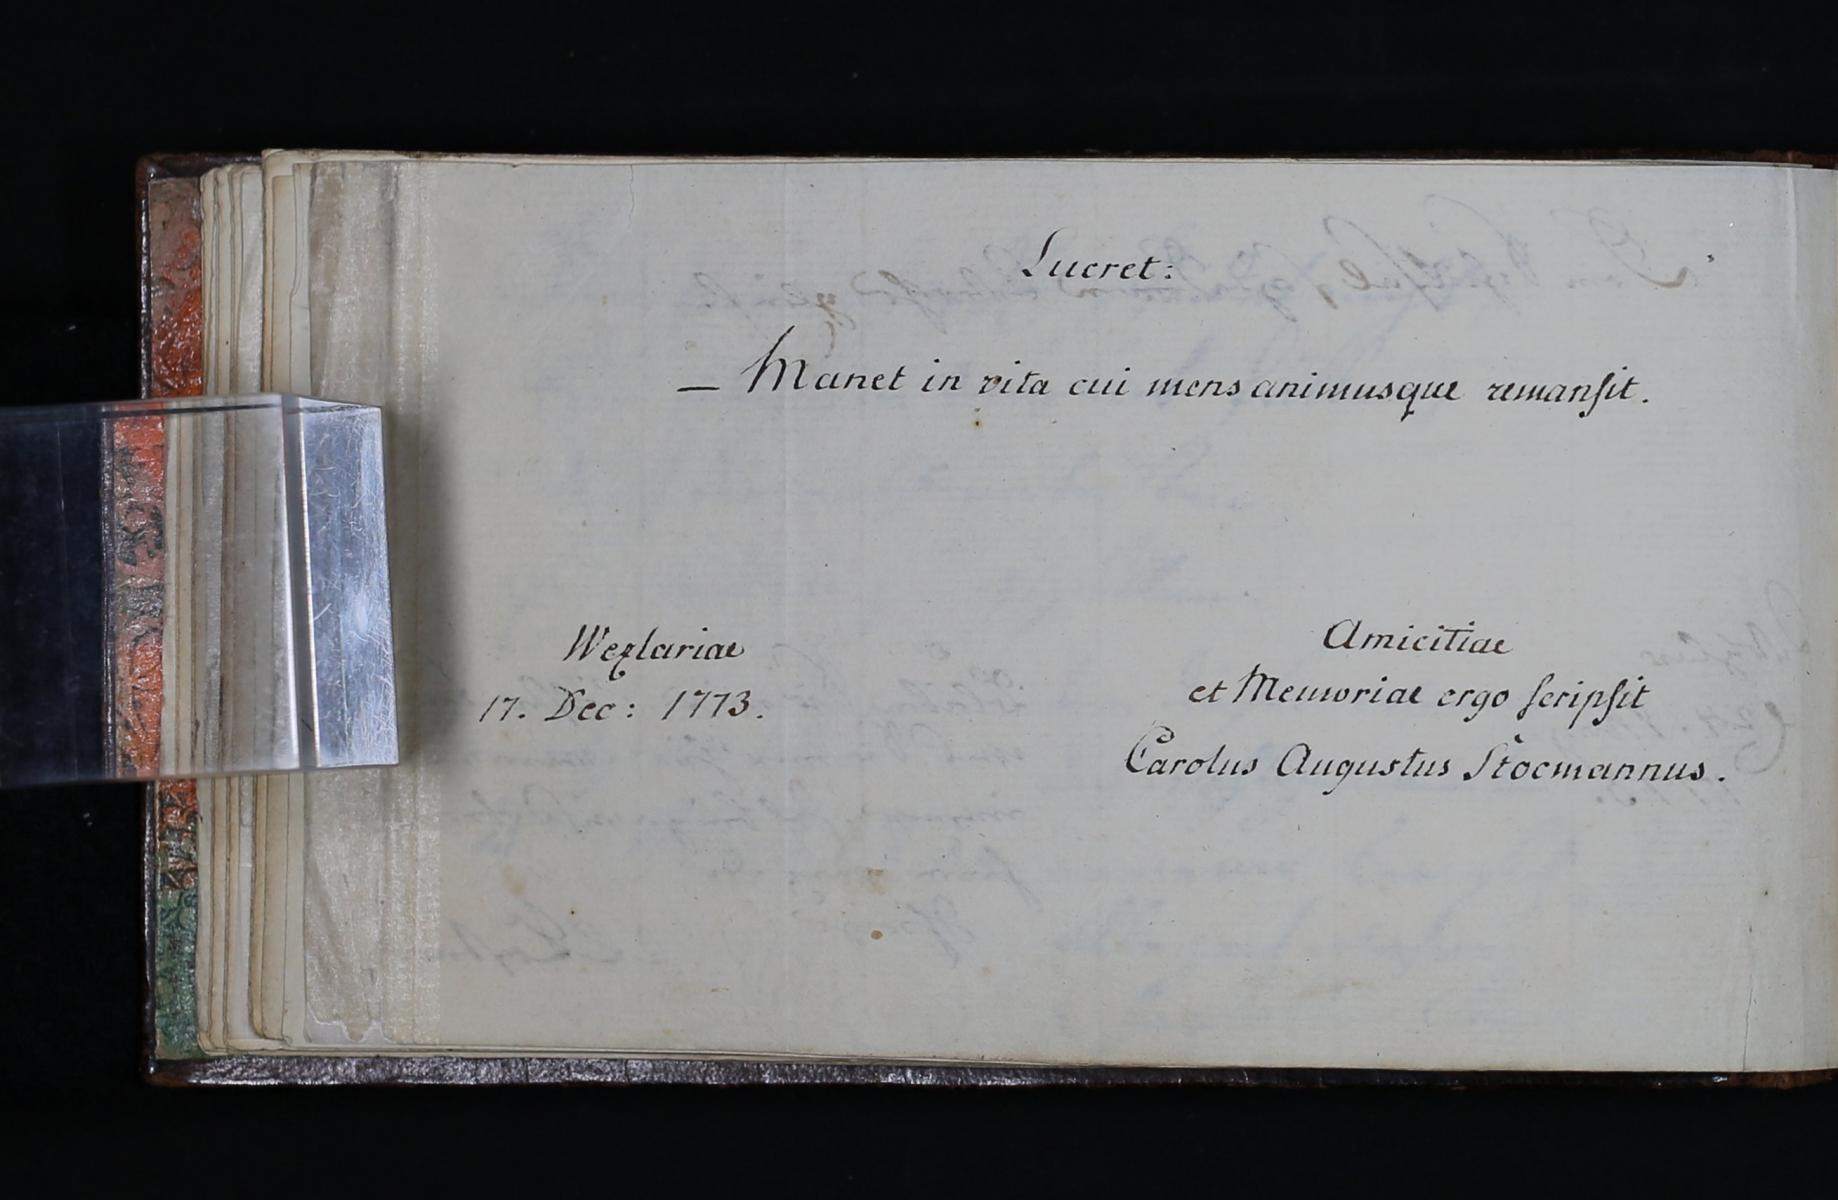 Lucret:
— Manet in vita cui mens animusque remansit.
Wezlariae
17. Dec: 1773.
Amicitiae
et Memoriae ergo scripsit
Carolus Augustus Stocmannus.